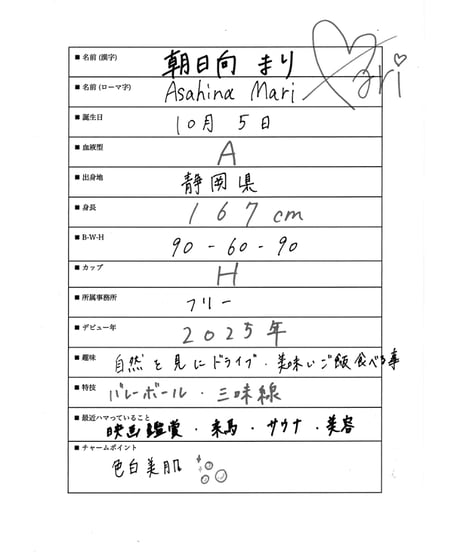 ■ 名前 (漢字) 朝日向 まり
■ 名前 (ローマ字) Asahina Mari
Mari
■ 誕生日 10月 5日
■ 血液型 A
■ 出身地 静岡県
■ 身長 167cm
■ B-W-H 90-60-90
■ カップ H
■ 所属事務所 フリー
■ デビュー年 2025年
■ 趣味 自然を見にドライブ・美味いご飯食べる事
■ 特技 バレーボール・三味線
■ 最近ハマっていること
映画鑑賞・乗馬・サウナ・美容
■ チャームポイント
色白美肌